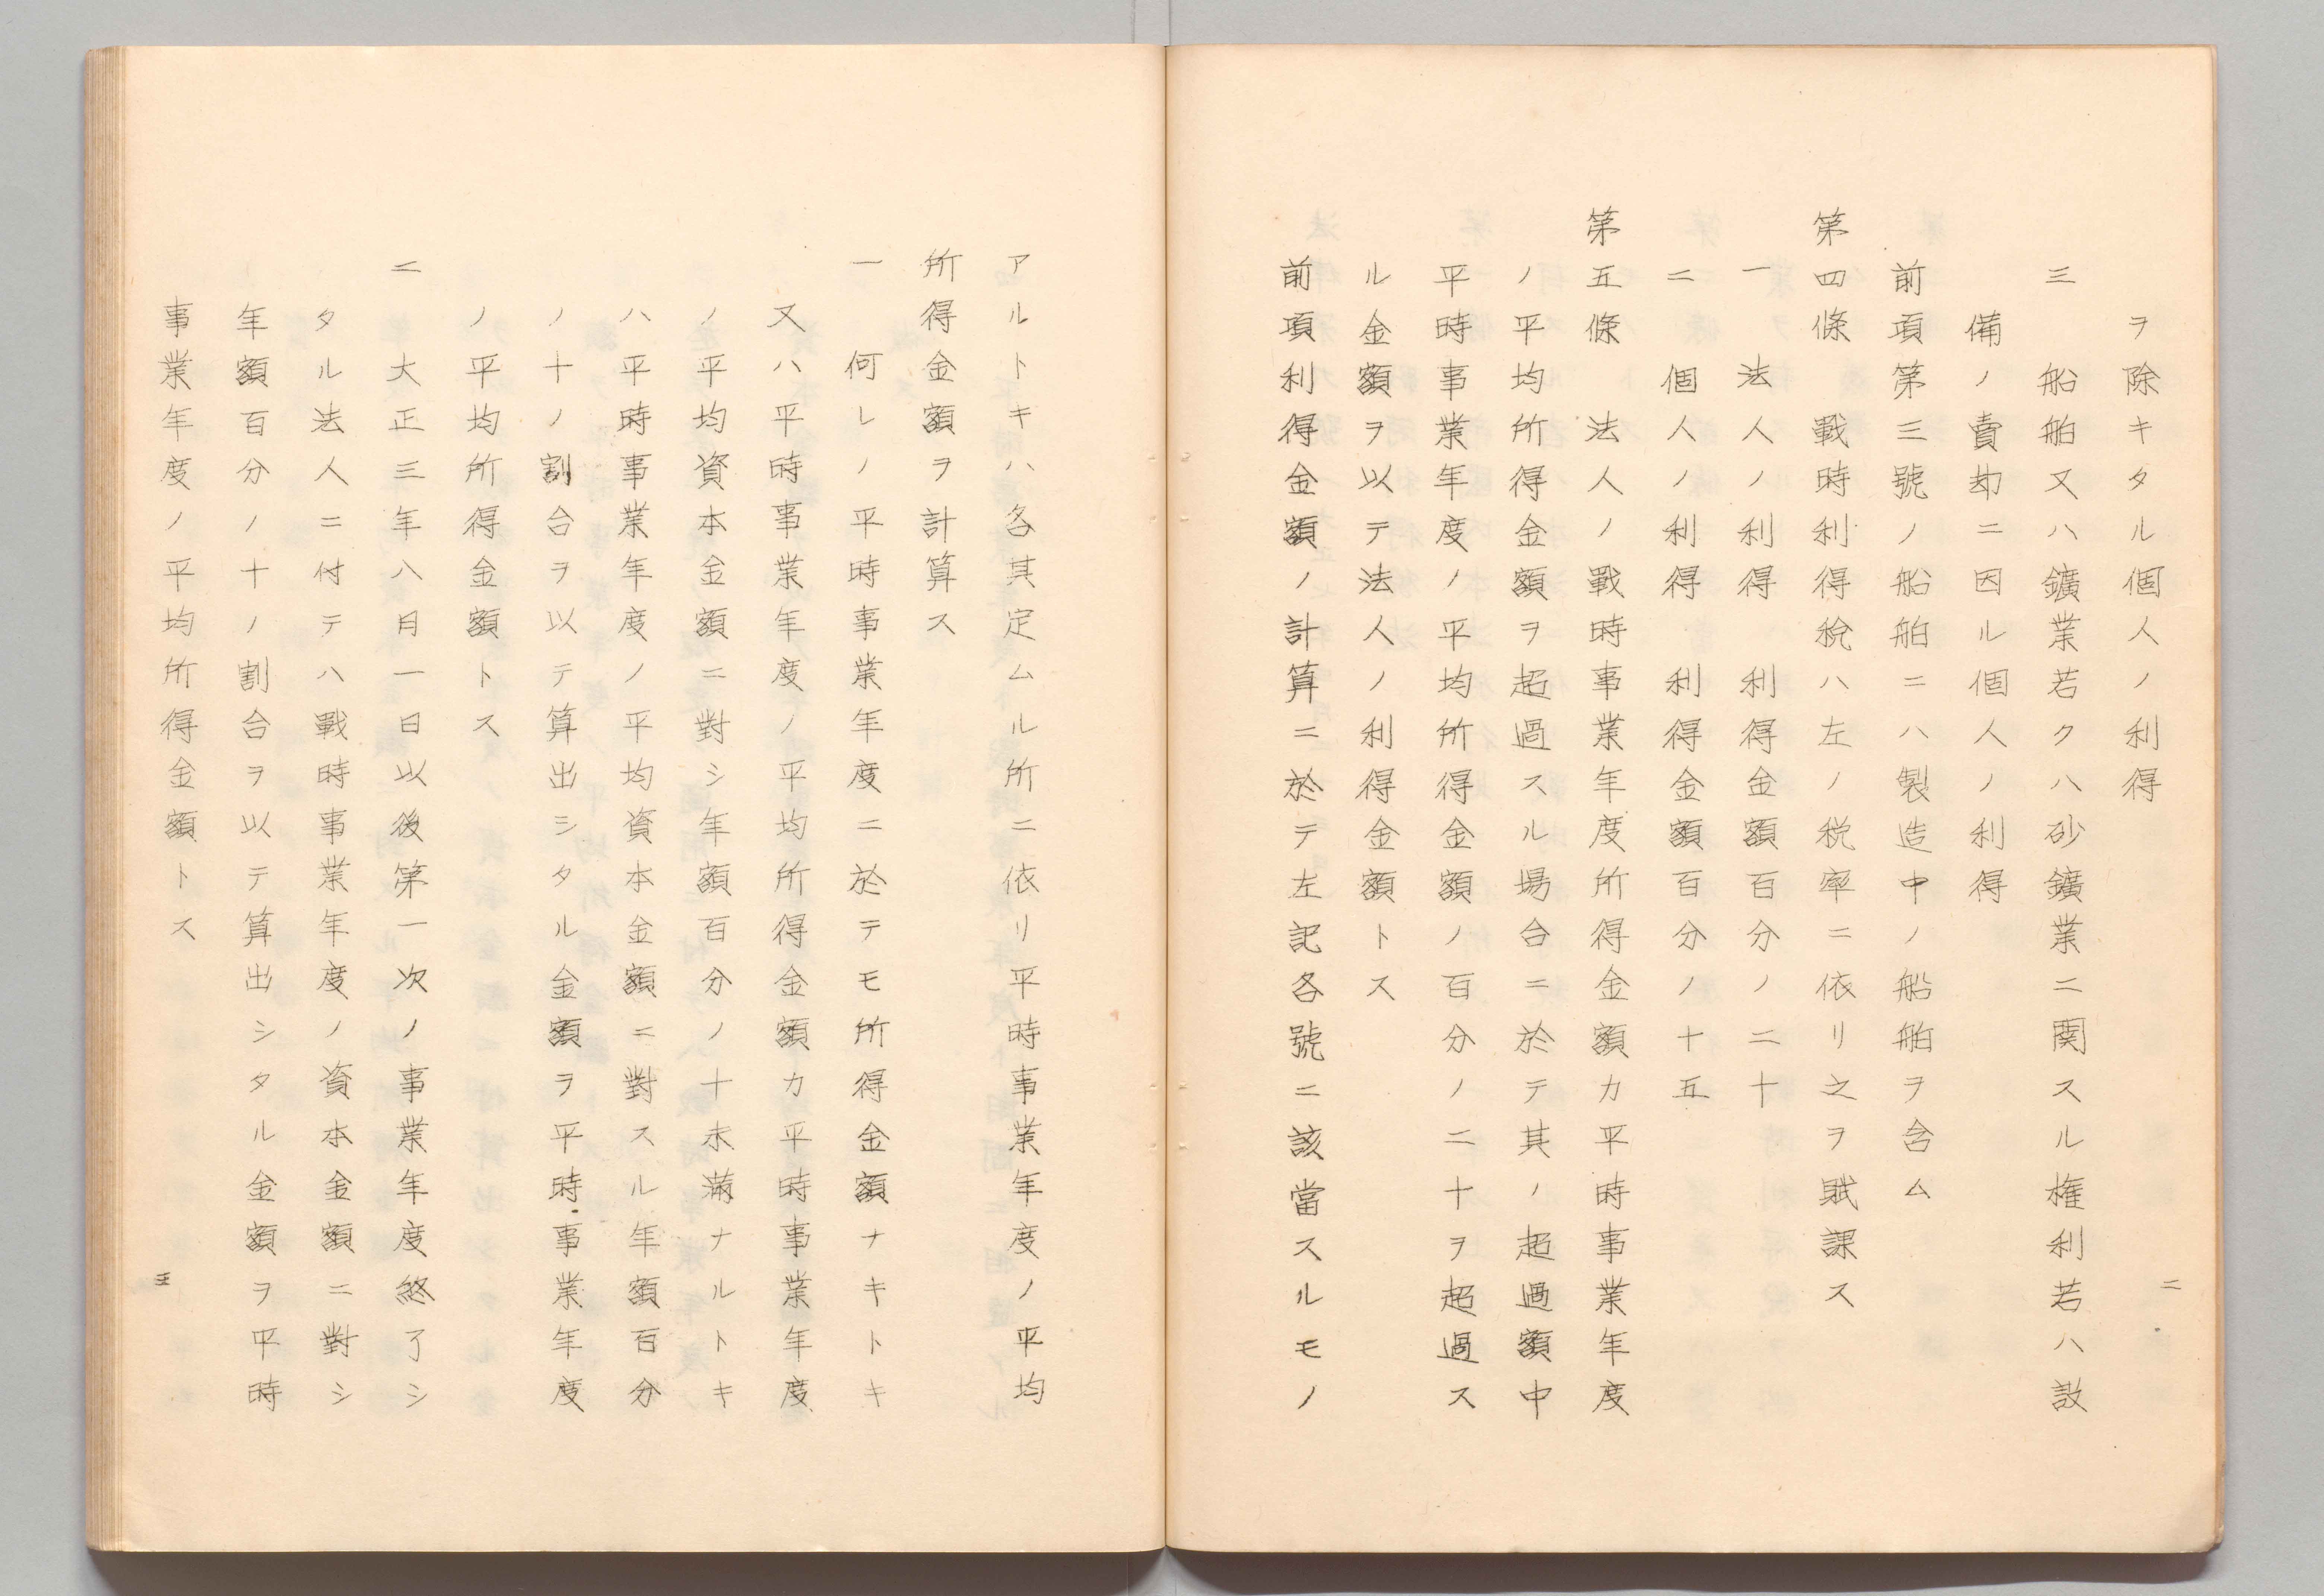 ヲ除キタル個人ノ利得
三　船舶又ハ鑛業若クハ砂鑛業ニ関スル権利若ハ設
備ノ賣却ニ因ル個人ノ利得
前項第三號ノ船舶ニハ製造中ノ船舶ヲ含ム
第四條　戰時利得税ハ左ノ税率ニ依リ之ヲ賦課ス
一　法人ノ利得　利得金額百分ノ二十
二　個人ノ利得　利得金額百分ノ十五
第五條　法人ノ戰時事業年度所得金額カ平時事業年度
ノ平均所得金額ヲ超過スル場合ニ於テ其ノ超過額中
平時事業年度ノ平均所得金額ノ百分ノ二十ヲ超過ス
ル金額ヲ以テ法人ノ利得金額トス
前項利得金額ノ計算ニ於テ左記各號ニ該當スルモノ
二
アルトキハ各其定ムル所ニ依リ平時事業年度ノ平均
所得金額ヲ計算ス
一　何レノ平時事業年度ニ於テモ所得金額ナキトキ
又ハ平時事業年度ノ平均所得金額カ平時事業年度
ノ平均資本金額ニ對シ年額百分ノ十未滿ナルトキ
ハ平時事業年度ノ平均資本金額ニ對スル年額百分
ノ十ノ割合ヲ以テ算出シタル金額ヲ平時事業年度
ノ平均所得金額トス
二　大正三年八月一日以後第一次ノ事業年度終了シ
タル法人ニ付テハ戰時事業年度ノ資本金額ニ對シ
年額百分ノ十ノ割合ヲ以テ算出シタル金額ヲ平時
事業年度ノ平均所得金額トス
三